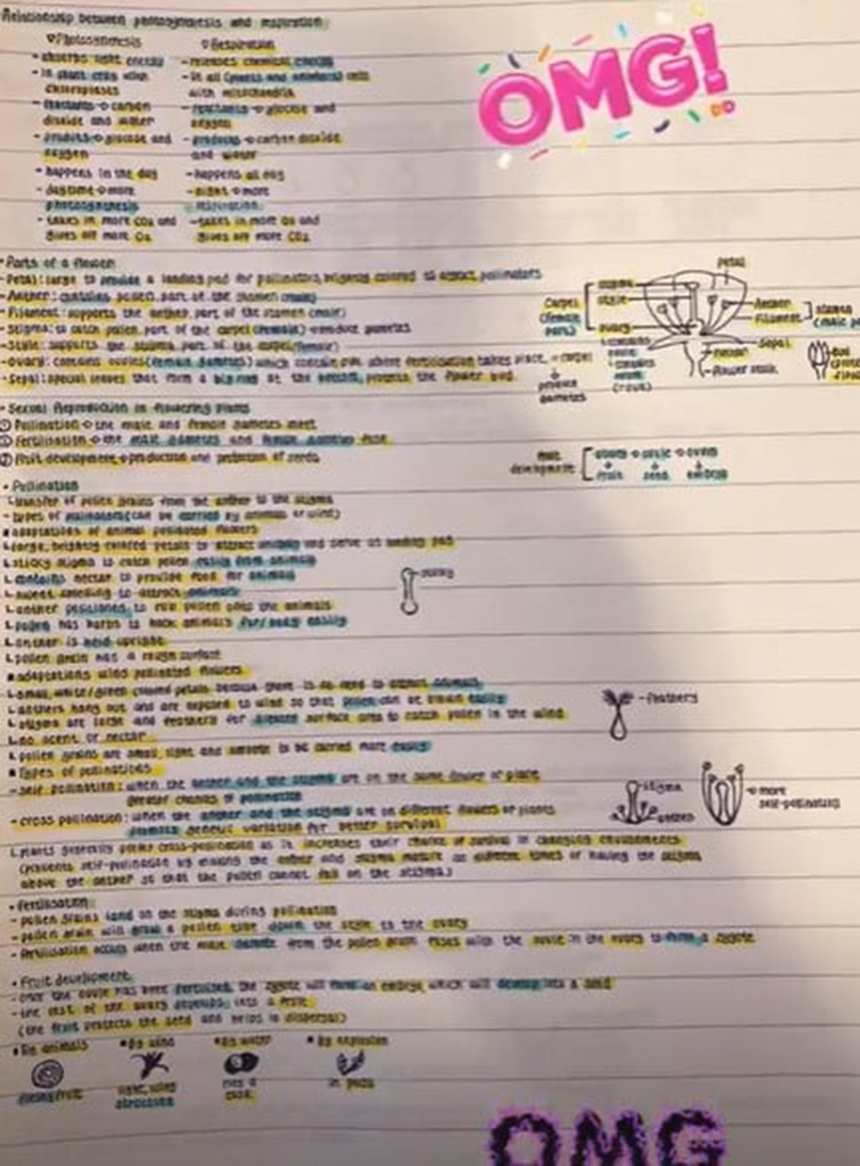 Relationship between photosynthesis and respiration:
▽Photosynthesis
- absorbs light energy
- in plant cells with
chloroplasts
- reactants → carbon
dioxide and water
- products → glucose and
oxygen
- happens in the day
- daytime → more
photosynthesis
- takes in more CO₂ and
gives off more O₂
▽Respiration
- releases chemical energy
- in all (plants and animals) cells
with mitochondria
- reactants → glucose and
oxygen
- products → carbon dioxide
and water
- happens all day
- night → more
respiration
- takes in more O₂ and
gives off more CO₂
OMG!
• Parts of a flower
- Petal: large to provide a landing pad for pollinators, brightly colored to attract pollinators
- Anther: contains pollen, part of the stamen (male)
- Filament: supports the anther, part of the stamen (male)
- Stigma: to catch pollen, part of the carpel (female) → produce gametes
- Style: supports the stigma, part of the carpel (female)
- Ovary: contains ovules (female gametes) which contain where fertilisation takes place,
- Sepal: special leaves that form a ring at the protects the flower bud
petal
stigma
style
ovary
Carpel
(female
part)
Anther
Filament
stamen
(male
sepal
nectar
flower stalk
produce
gametes
• Sexual Reproduction in flowering plants
① Pollination → the male and female gametes meet
② Fertilisation → the male gametes and female gametes fuse
③ Fruit development → production and protection of seeds
fruit
development
ovary → ovule → ovum
fruit seed embryo
• Pollination
└transfer of pollen grains from the anther to the stigma
- types of pollinators (can be carried by animals or wind)
▪adaptations of animal pollinated flowers
└large, brightly colored petals to attract animals and serve as landing pad
└sticky stigma to catch pollen easily from animals
└contains nectar to provide food for animals
└sweet smelling to attract animals
└anther positioned to rub pollen onto the animals
└pollen has barbs to hook animals fur/body easily
└anther is held upright
└pollen grain has a rough surface
sticky
▪adaptations wind pollinated flowers
└small, white/green colored petals because there is no need to attract animals
└anthers hang out and are exposed to wind so that pollen can be blown easily
└stigma are large and feathery for greater surface area to catch pollen in the wind
└no scent or nectar
└pollen grains are small, light and smooth to be carried more easily
- feathery
▪Types of pollinations
- self pollination: when the anther and the stigma are on the same flower or plant
greater chances of pollination
- cross pollination: when the anther and the stigma are on different flowers or plants
promote genetic variation for better survival
stigma
anther
→ more
self-pollination
└plants generally prefer cross-pollination as it increases their chance of survival in changing environments
(prevents self-pollination by making the anther and stigma mature at different times or having the stigma
above the anther so that the pollen cannot fall on the stigma)
• Fertilisation:
- pollen grains land on the stigma during pollination
- pollen grain will grow a pollen tube down the style to the ovary
- fertilisation occurs when the male gamete from the pollen grain fuses with the ovule in the ovary to form a zygote
• Fruit development:
- once the ovule has been fertilised, the zygote will form an embryo, which will develop into a seed
- the rest of the ovary develops into a fruit
(the fruit protects the seed and helps in dispersal)
▪By animals ▪By wind ▪By water ▪By explosion
fruit
light, wing
structure
in pods
OMG